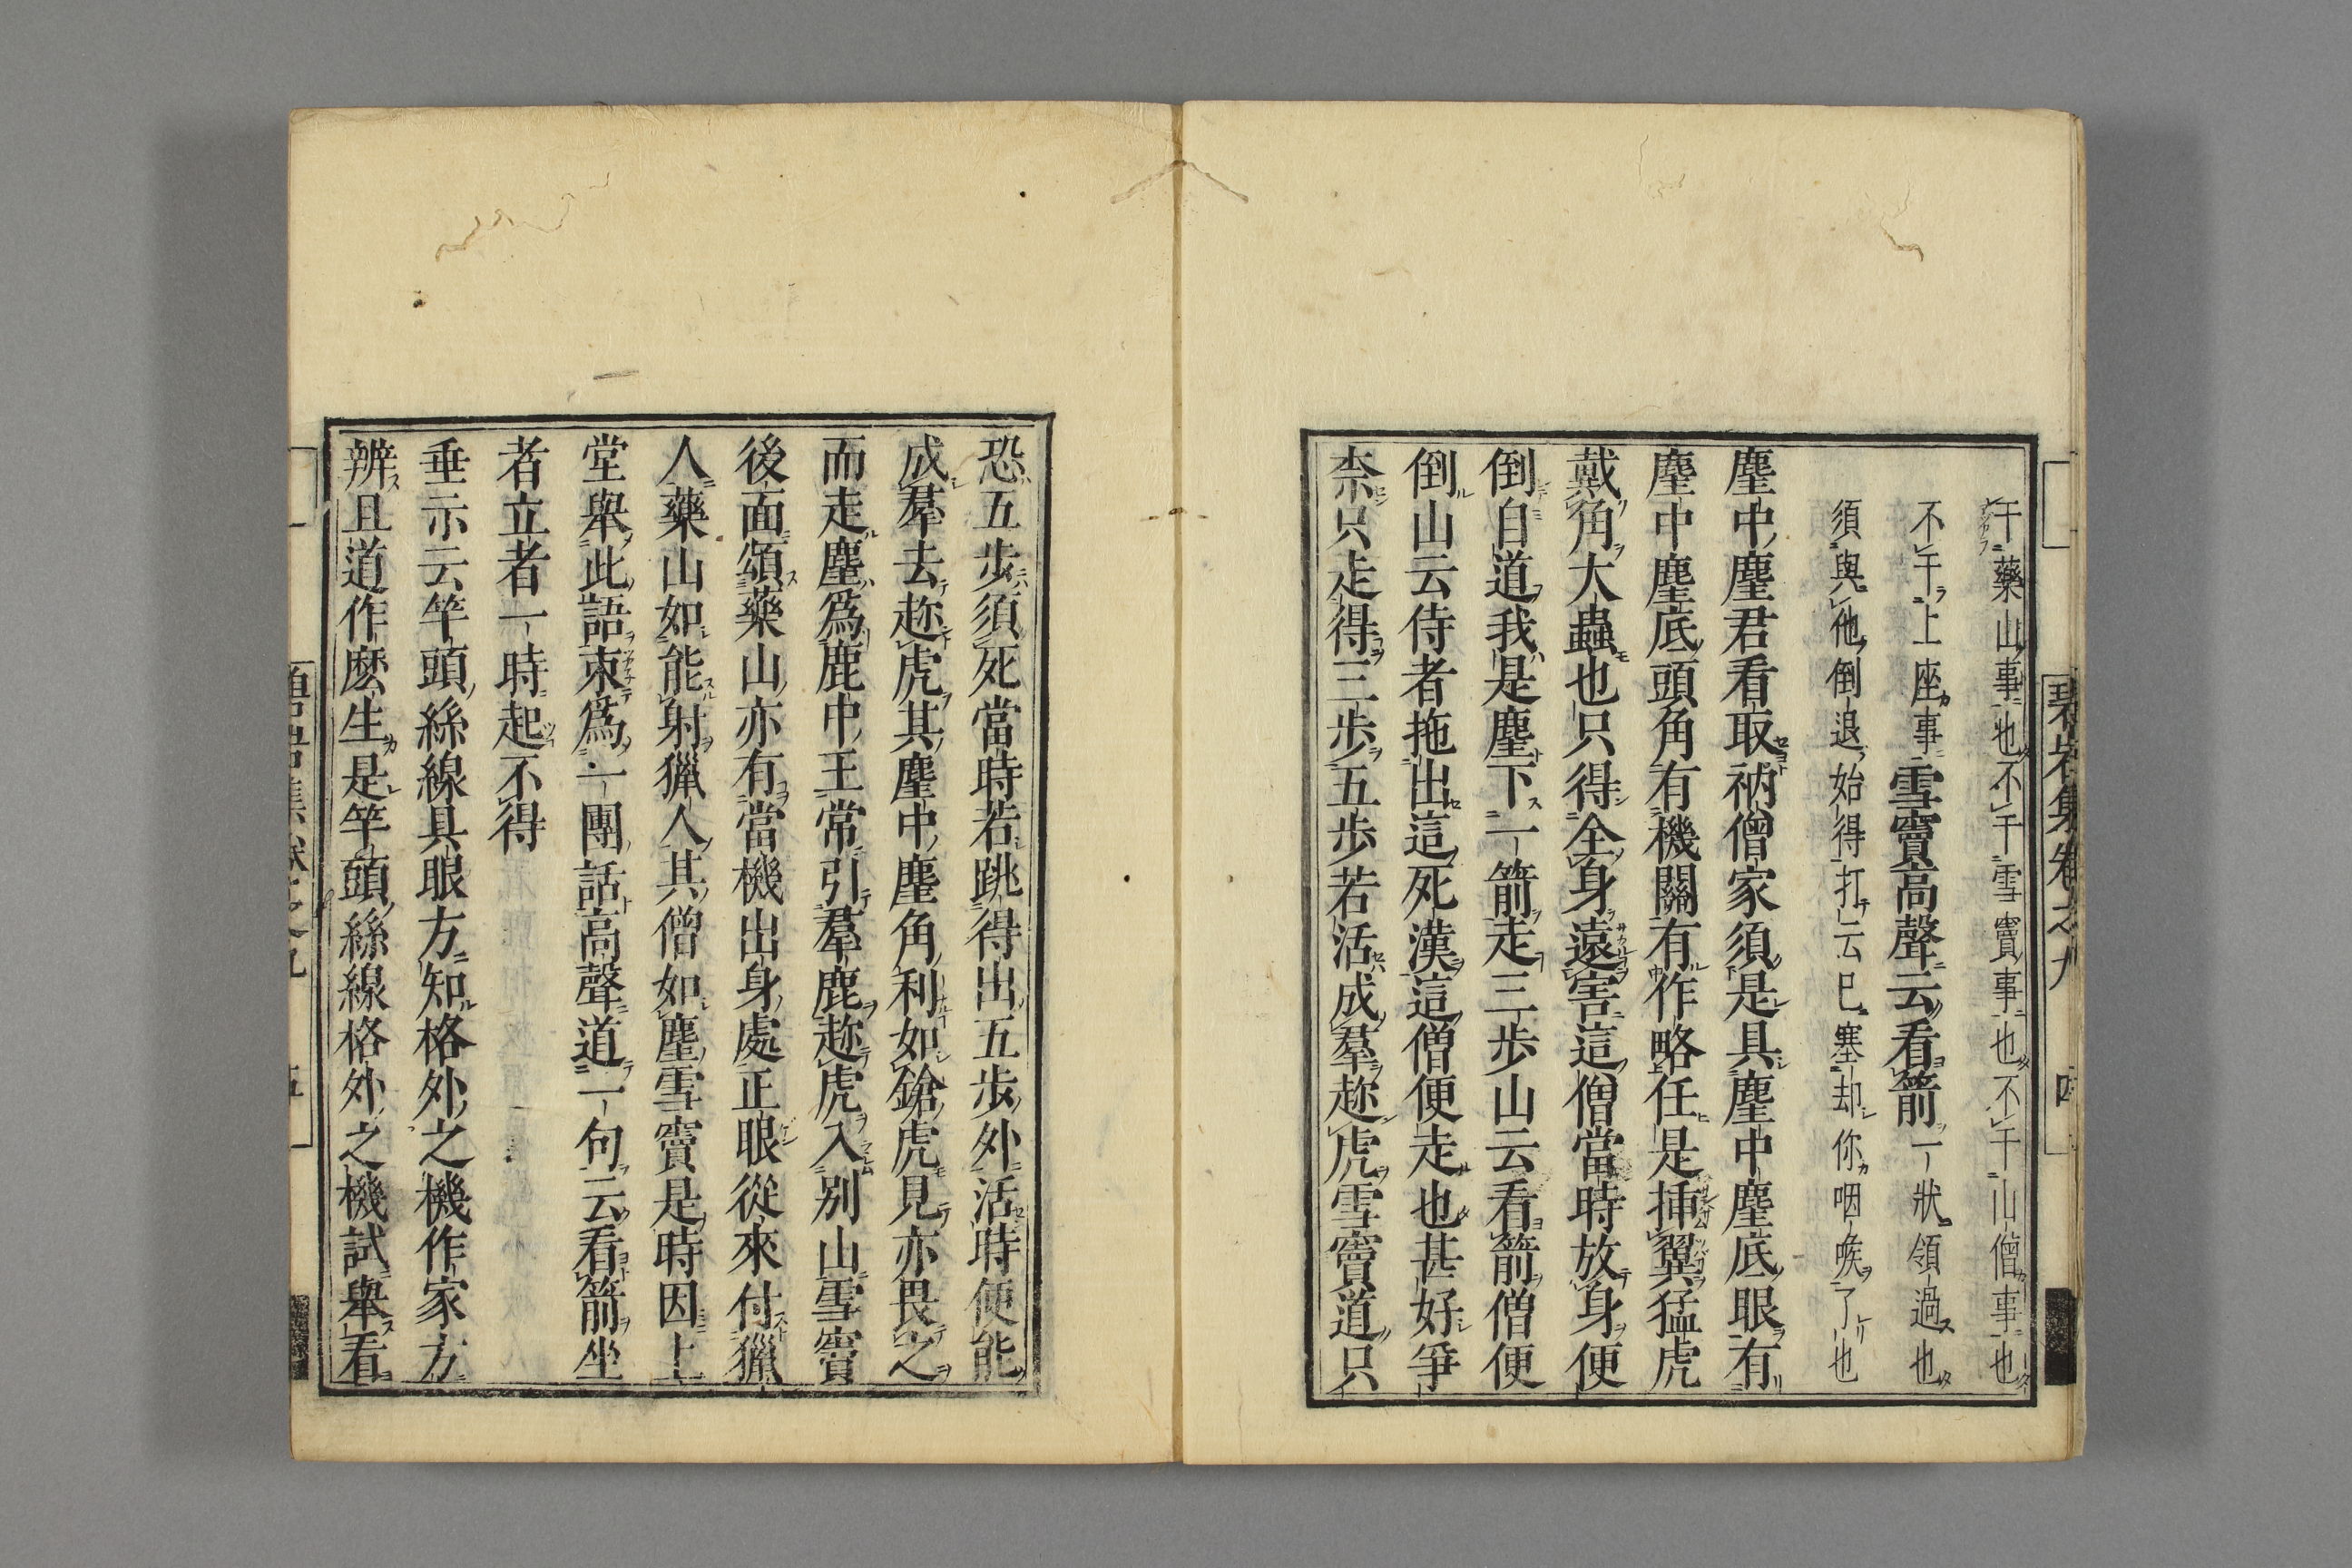 碧岩集卷之九 四
干藥山事也不干雪竇事也不干山僧事也
不干上座事雪竇高聲云看箭一狀領過也
須與他倒退始得打云已塞却你咽喉了也
塵中塵君看取衲僧家須是具塵中塵底眼有
塵中塵底頭角有機關有作略任是挿翼猛虎
戴角大蟲也只得全身遠害這僧當時放身便
倒自道我是塵下一箭走三步山云看箭僧便
倒山云侍者拖出這死漢這僧便走也甚好爭
柰只走得三步五步若活成羣趂虎雪竇道只
恐五步須死當時若跳得出五步外活時便能
成羣去趂虎其塵中塵角利如鎗虎見亦畏之
而走塵爲鹿中王常引羣鹿趂虎入別山雪竇
後面頌藥山亦有當機出身處正眼從來付獵
人藥山如能射獵人其僧如塵雪竇是時因上
堂舉此語束爲一團話高聲道一句云看箭坐
者立者一時起不得
垂示云竿頭絲線具眼方知格外之機作家方
辨且道作麽生是竿頭絲線格外之機試舉看